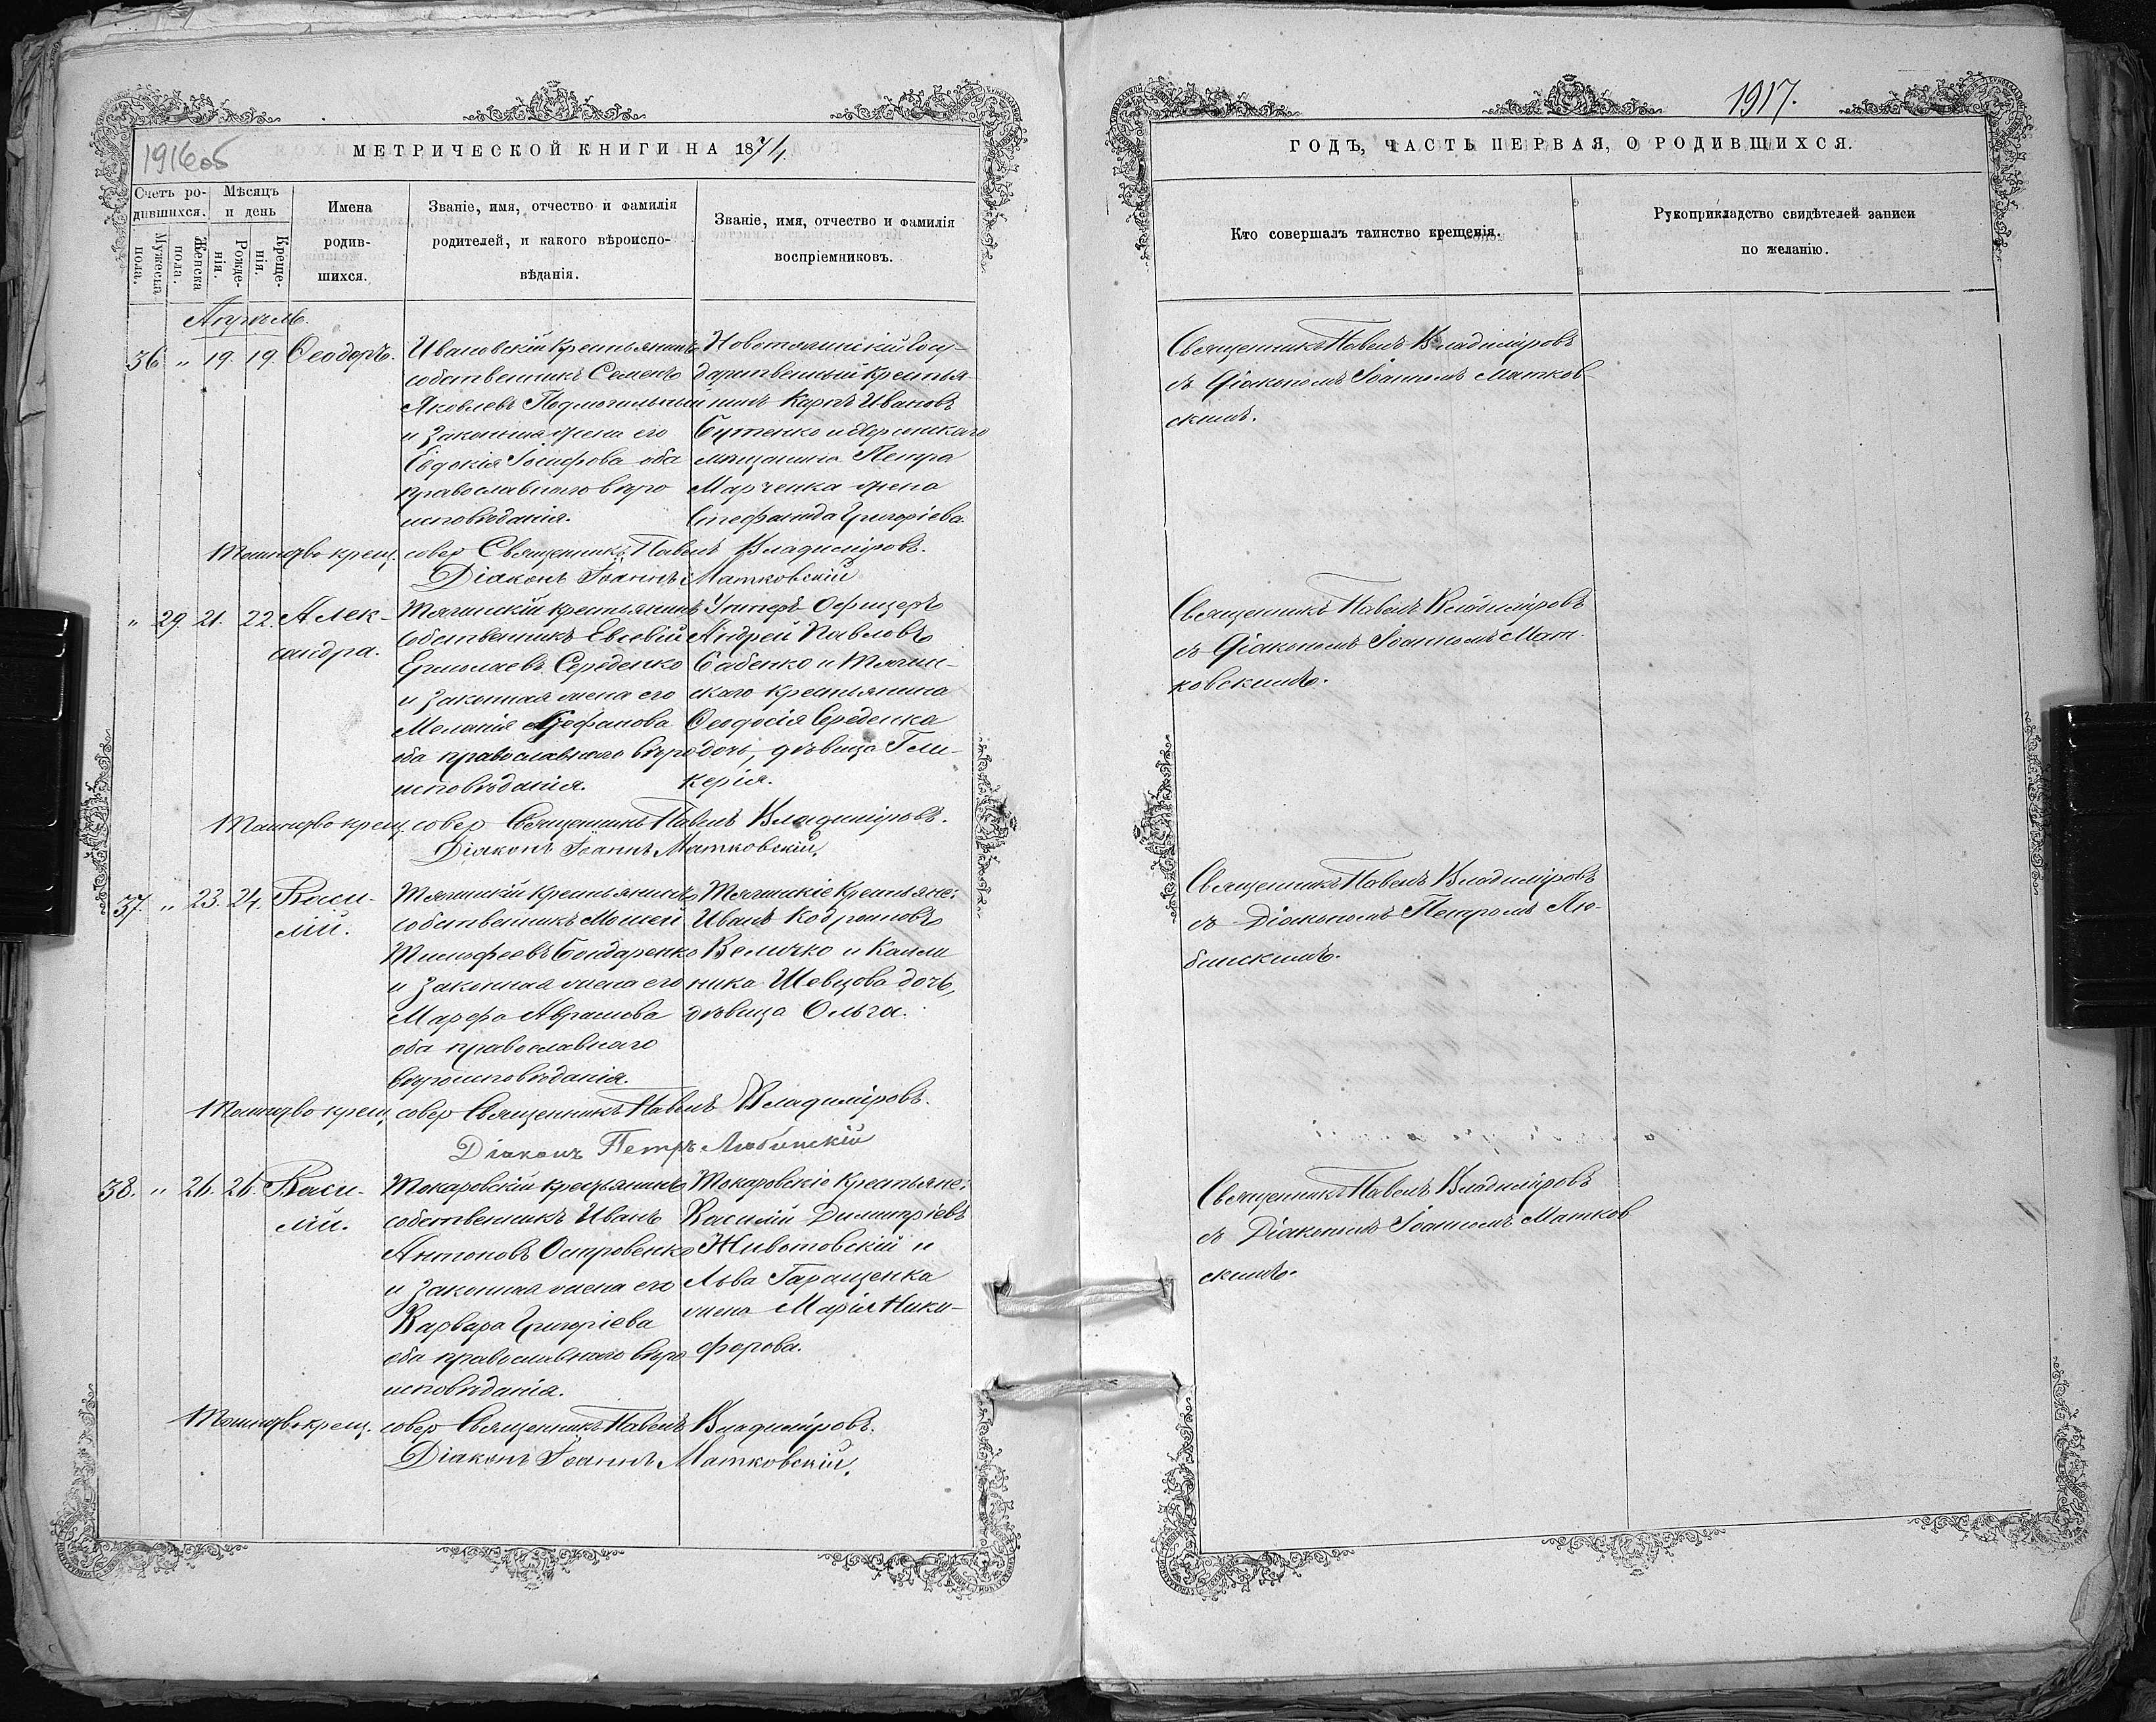 1916об
МЕТРИЧЕСКОЙ КНИГИ НА 1874
Счетъ ро-
дившихся.
Мѣсяцъ
и день
Мужеска
пола.
Женска
пола.
Рожде-
нія.
Креще-
нія.
Имена
родив-
шихся.
Званіе, имя, отчество и фамилія
родителей, и какого вѣроиспо-
вѣданія.
Званіе, имя, отчество и фамилія
воспріемниковъ.
Апрѣль.
36. " 19. 19. Ѳеодоръ.
Ивановскій крестьянинъ
собственникъ Семенъ
Яковлевъ Подмогильный
и законная жена его
Евдокія Іосифова оба
православнаго вѣро
исповѣданія.
Новотягинскій Госу-
дарственный крестья-
нинъ Карпъ Ивановъ
Бутенко и
мѣщанина Петра
Марченка жена
Стефанида Григоріева.
Таинство крещ. совер Священникъ Павелъ Владиміровъ.
Діаконъ Іоаннъ Матковскій
" 29. 21. 22. Алек-
сандра.
Тягинскій крестьянинъ
собственникъ Евсевій
Ермолаевъ Середенко
и законная жена его
Меланія
оба православнаго вѣро
исповѣданія.
Унтеръ-Офицеръ
Андрей Павловъ
Бабенко и Тягин-
скаго крестьянина
Ѳеодосія Середенка
дочь, дѣвица Гли-
керія.
Таинство крещ. совер Священникъ Павелъ Владиміровъ.
Діаконъ Іоаннъ Матковскій.
37. " 23. 24. Васи-
лій.
Тягинскій крестьянинъ
собственникъ Моисей
Тимофеевъ Бондаренко
и законная жена его
Марфа Авраамова
оба православнаго
вѣроисповѣданія.
Тягинскіе крестьяне:
Иванъ Кодратовъ
Величко и Калли
ника Шевцова дочь,
дѣвица Ольга.
Таинство крещ. совер Священникъ Павелъ Владиміровъ.
Діаконъ Петръ Любинскій
38. " 26. 26. Васи-
лій.
Токаровскій крестьянинъ
собственникъ Иванъ
Антоновъ Островенко
и законная жена его
Варвара Григоріева
оба православнаго вѣро
исповѣданія.
Токаровскіе крестьяне:
Василій Димитріевъ
Животовскій и
Льва Гаращенка
жена Марія Ники-
форова.
Таинство крещ. совер Священникъ Павелъ Владиміровъ.
Діаконъ Іоаннъ Матковскій.
1917.
ГОДЪ, ЧАСТЬ ПЕРВАЯ, О РОДИВШИХСЯ.
Кто совершалъ таинство крещенія.
Рукоприкладство свидѣтелей записи
по желанію.
Священникъ Павелъ Владиміровъ
съ Діакономъ Іоанномъ Матков-
скимъ.
Священникъ Павелъ Владиміровъ
съ Діакономъ Іоанномъ Мат-
ковскимъ.
Священникъ Павелъ Владиміровъ
съ Діакономъ Петромъ Лю-
бинскимъ.
Священникъ Павелъ Владиміровъ
съ Діакономъ Іоанномъ Матков
скимъ.